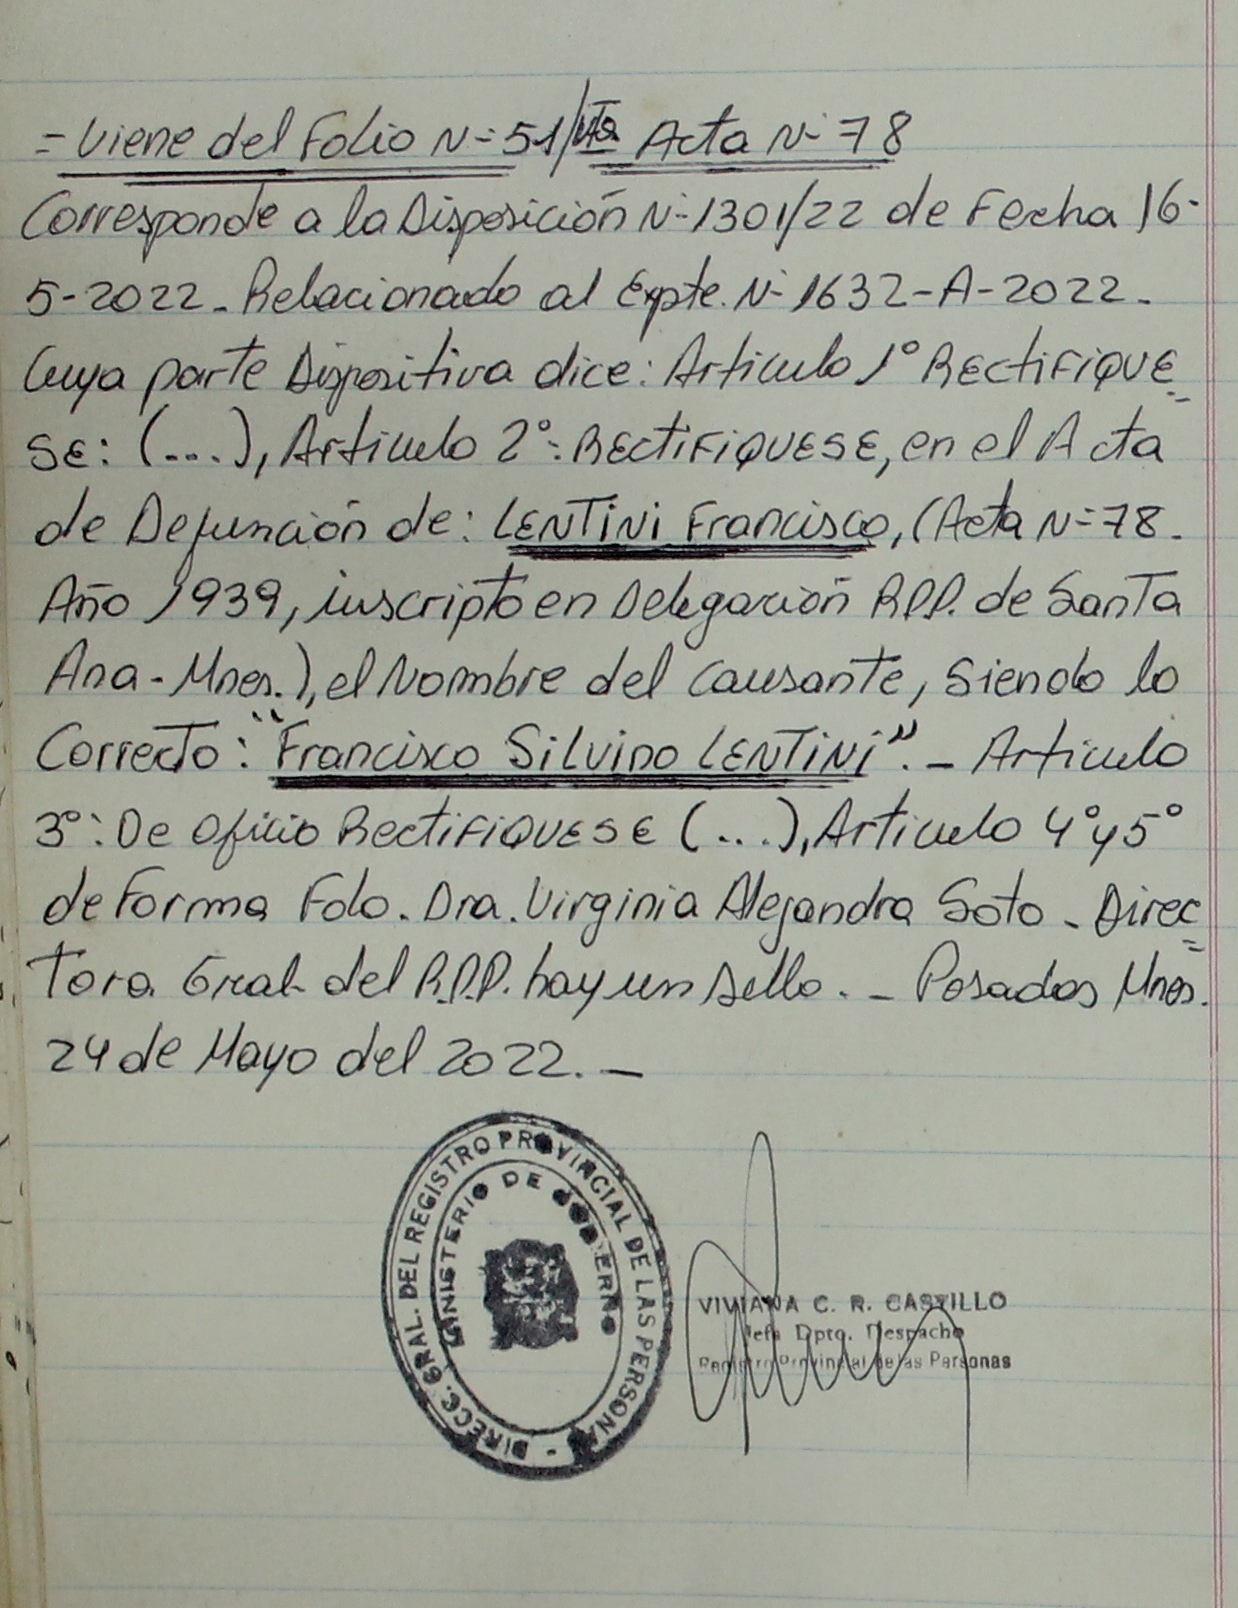 = Viene del Folio N= 51/vta Acta N- 78
Corresponde a la Disposición N- 1301/22 de Fecha 16-
5-2022_ Relacionado al Expte. N- 1632-A-2022_
Cuya parte Dispositiva dice: Articulo 1° RECTIFIQUE=
SE: (...), Articulo 2°: RECTIFIQUESE, en el Acta
de Defunción de: LENTINI Francisco, (Acta N= 78.
Año 1939, inscripto en Delegación R.P.P. de Santa
Ana - Mnes.), el Nombre del Causante, Siendo lo
Correcto: "Francisco Silvino LENTINI". _ Articulo
3°: De Oficio RECTIFIQUESE (...), Articulo 4° y 5°
de Forma Fdo. Dra. Virginia Alejandra Soto _ Direc=
tora Gral. del R.P.P. hay un sello. _ Posadas Mnes.
24 de Mayo del 2022. _
DIRECC. GRAL. DEL REGISTRO PROVINCIAL DE LAS PERSONAS -
MINISTERIO DE GOBIERNO
VIVIANA C. R. CASTILLO
Jefa Dpto. Despacho
Registro Provincial de las Personas